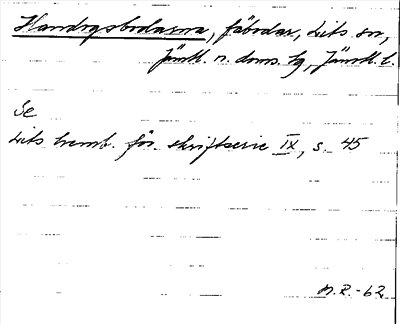 Handogsbodarna, fäbodar, Lits sn,
Jämtl. n. doms. tg, Jämtl. l.
Se
Lits hemb. för. skriftserie IX, s. 45
n.R.-62